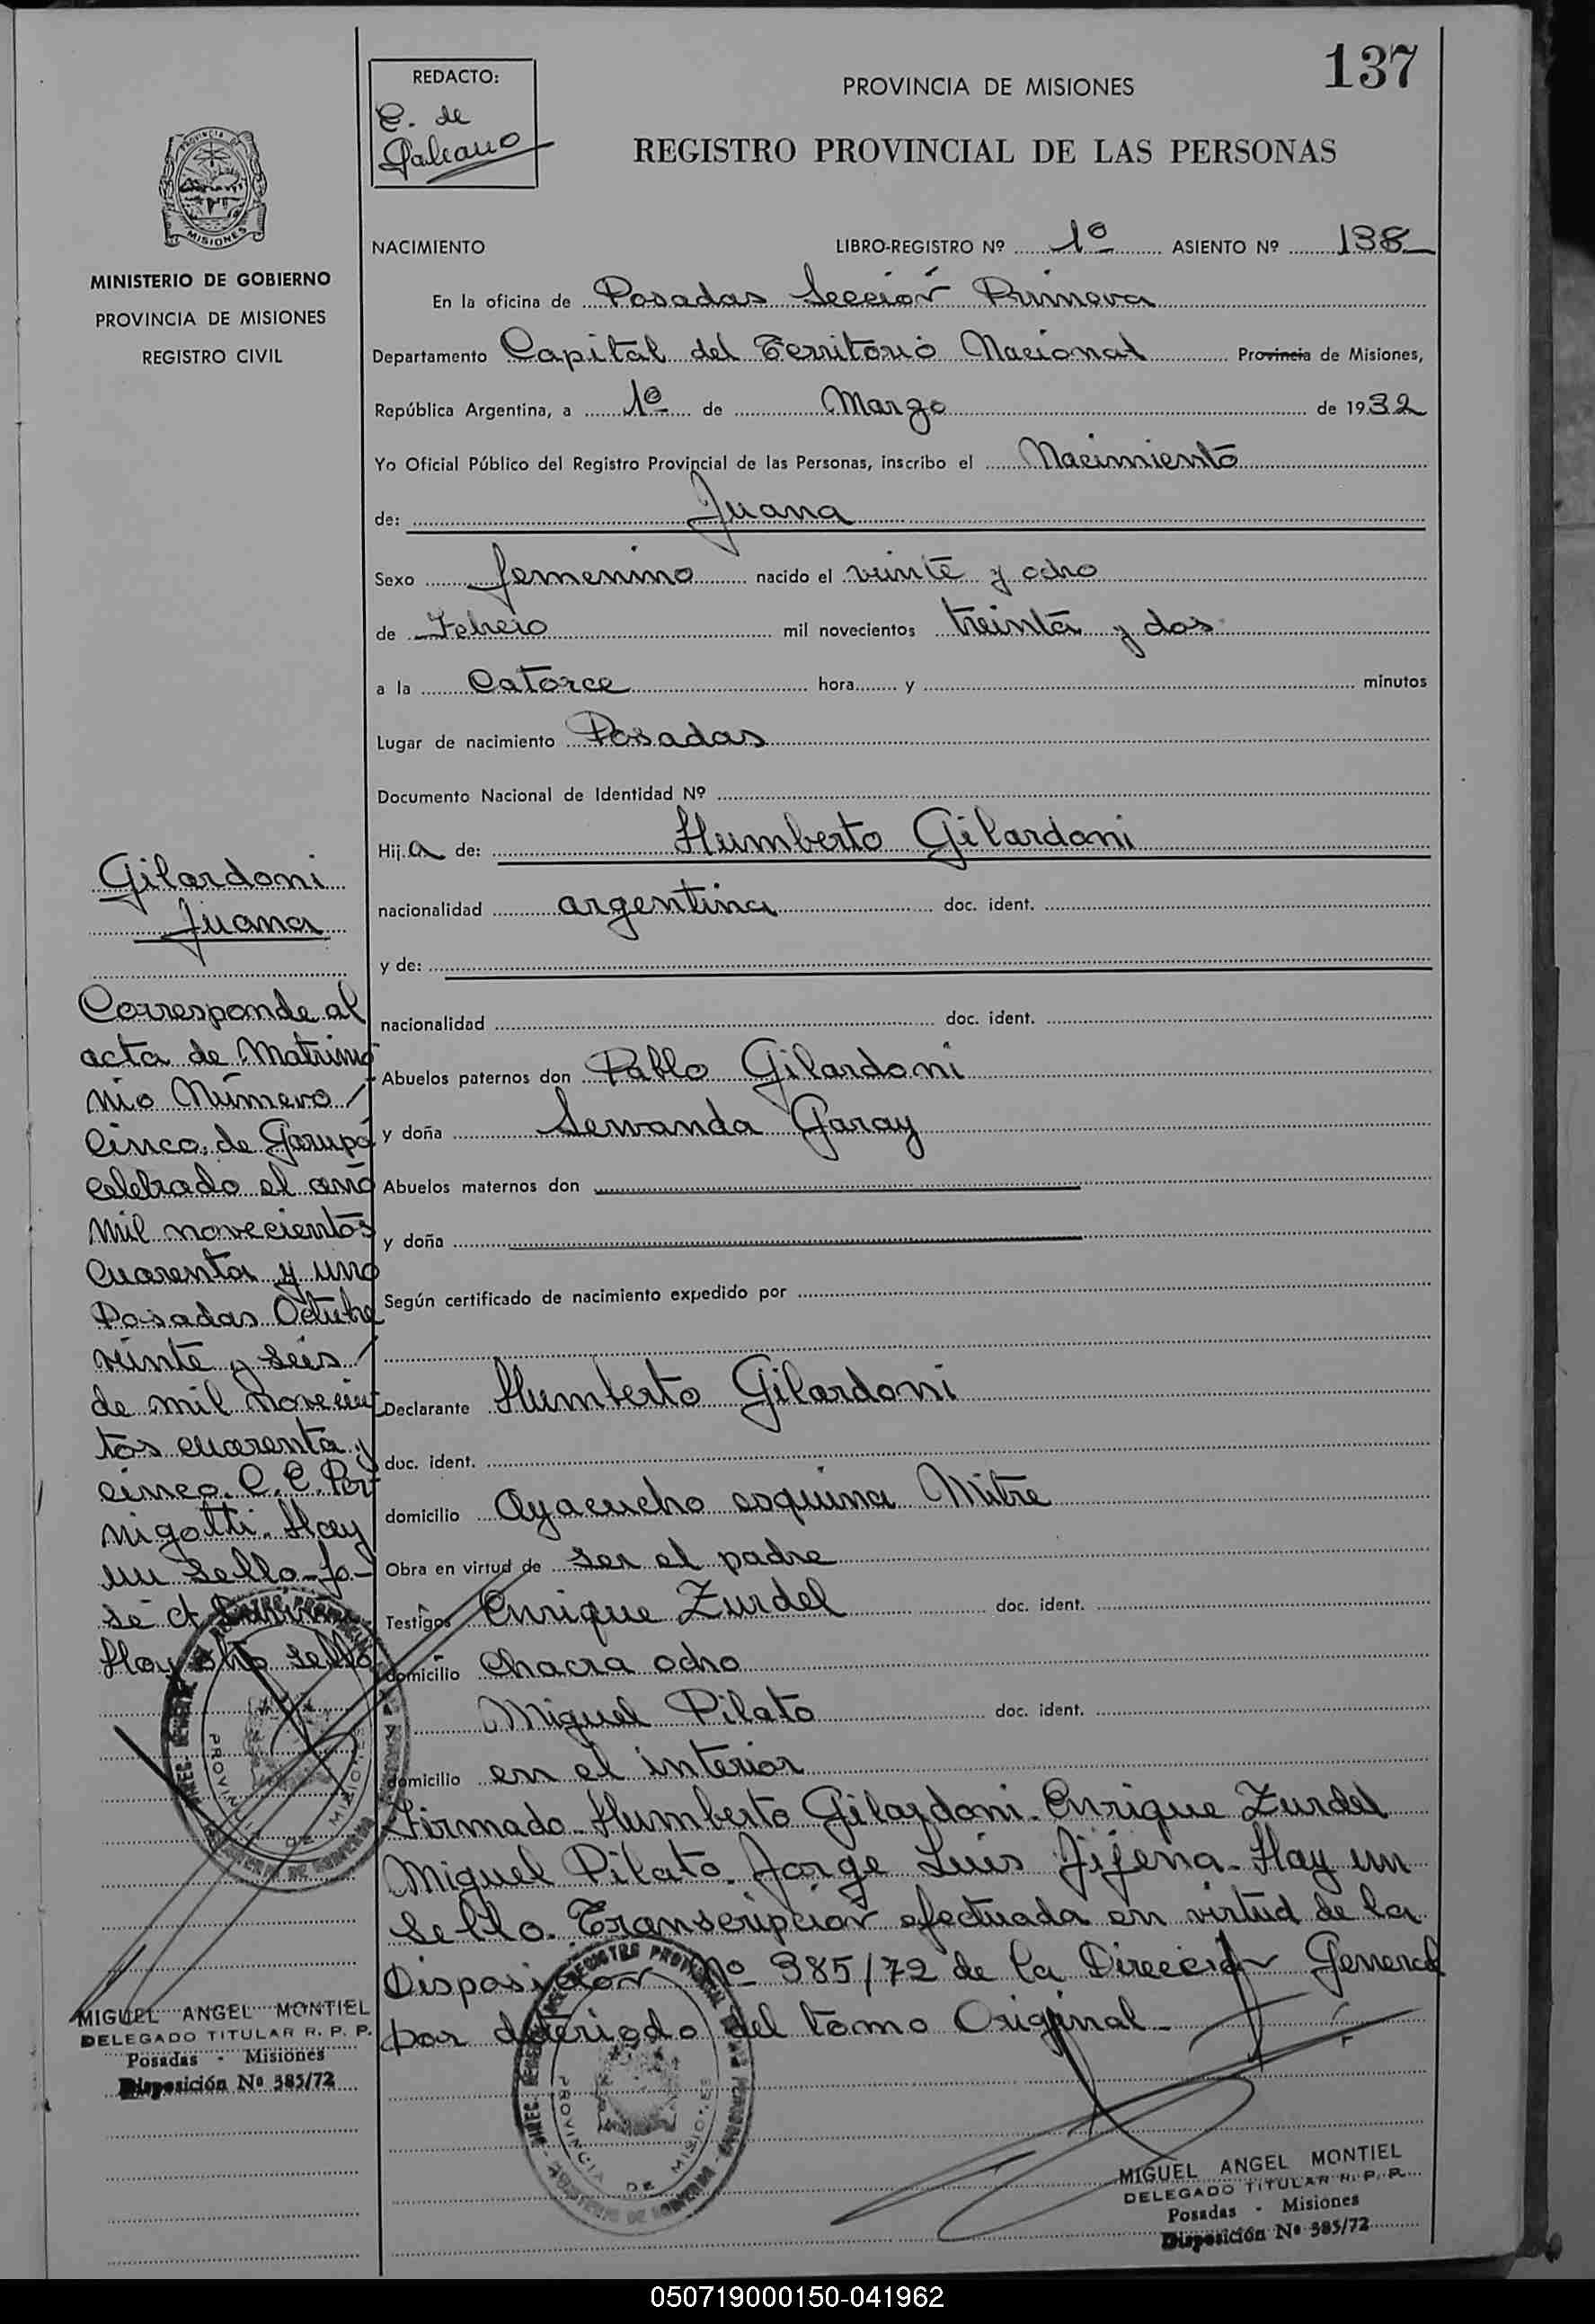 137
REDACTO:
E. de
Galeano
PROVINCIA DE MISIONES
REGISTRO PROVINCIAL DE LAS PERSONAS
PROVINCIA DE MISIONES
MINISTERIO DE GOBIERNO
PROVINCIA DE MISIONES
REGISTRO CIVIL
NACIMIENTO LIBRO-REGISTRO Nº 1º ASIENTO Nº 138
En la oficina de Posadas Sección Primera
Departamento Capital del Territorio Nacional Provincia de Misiones,
República Argentina, a 1º de Marzo de 1932
Yo Oficial Público del Registro Provincial de las Personas, inscribo el Nacimiento
de: Juana
Sexo femenino nacido el veinte y ocho
de Febrero mil novecientos treinta y dos
a la Catorce hora y minutos
Lugar de nacimiento Posadas
Documento Nacional de Identidad Nº
Hij a de: Humberto Gilardoni
nacionalidad argentina doc. ident.
y de:
nacionalidad doc. ident.
Abuelos paternos don Pablo Gilardoni
y doña Servanda Garay
Abuelos maternos don
y doña
Según certificado de nacimiento expedido por
Declarante Humberto Gilardoni
doc. ident.
domicilio Ayacucho esquina Mitre
Obra en virtud de ser el padre
Testigos Enrique Zurdel doc. ident.
domicilio Chacra ocho
Miguel Pilato doc. ident.
domicilio en el interior
Firmado. Humberto Gilardoni. Enrique Zurdel
Miguel Pilato. Jorge Luis Jijena. Hay un
Sello. Transcripción efectuada en virtud de la
Disposición Nº 385/72 de la Dirección General
por deteriodo del tomo Original.
Gilardoni
Juana
Corresponde al
acta de Matrimo
nio Número
Cinco de Garupá
celebrado el año
mil novecientos
cuarenta y uno
Posadas Octubre
veinte y seis
de mil novecien
tos cuarenta y
cinco. C. C. Per-
nigotti. Hay
un Sello-Jo-
sé A.
Hay otro sello
MIGUEL ANGEL MONTIEL
DELEGADO TITULAR R. P. P.
Posadas - Misiones
Disposición Nº 385/72
PROVINCIA DE MISIONES
PROVINCIA DE MISIONES
MIGUEL ANGEL MONTIEL
DELEGADO TITULAR R. P. P.
Posadas - Misiones
Disposición Nº 385/72
050719000150-041962